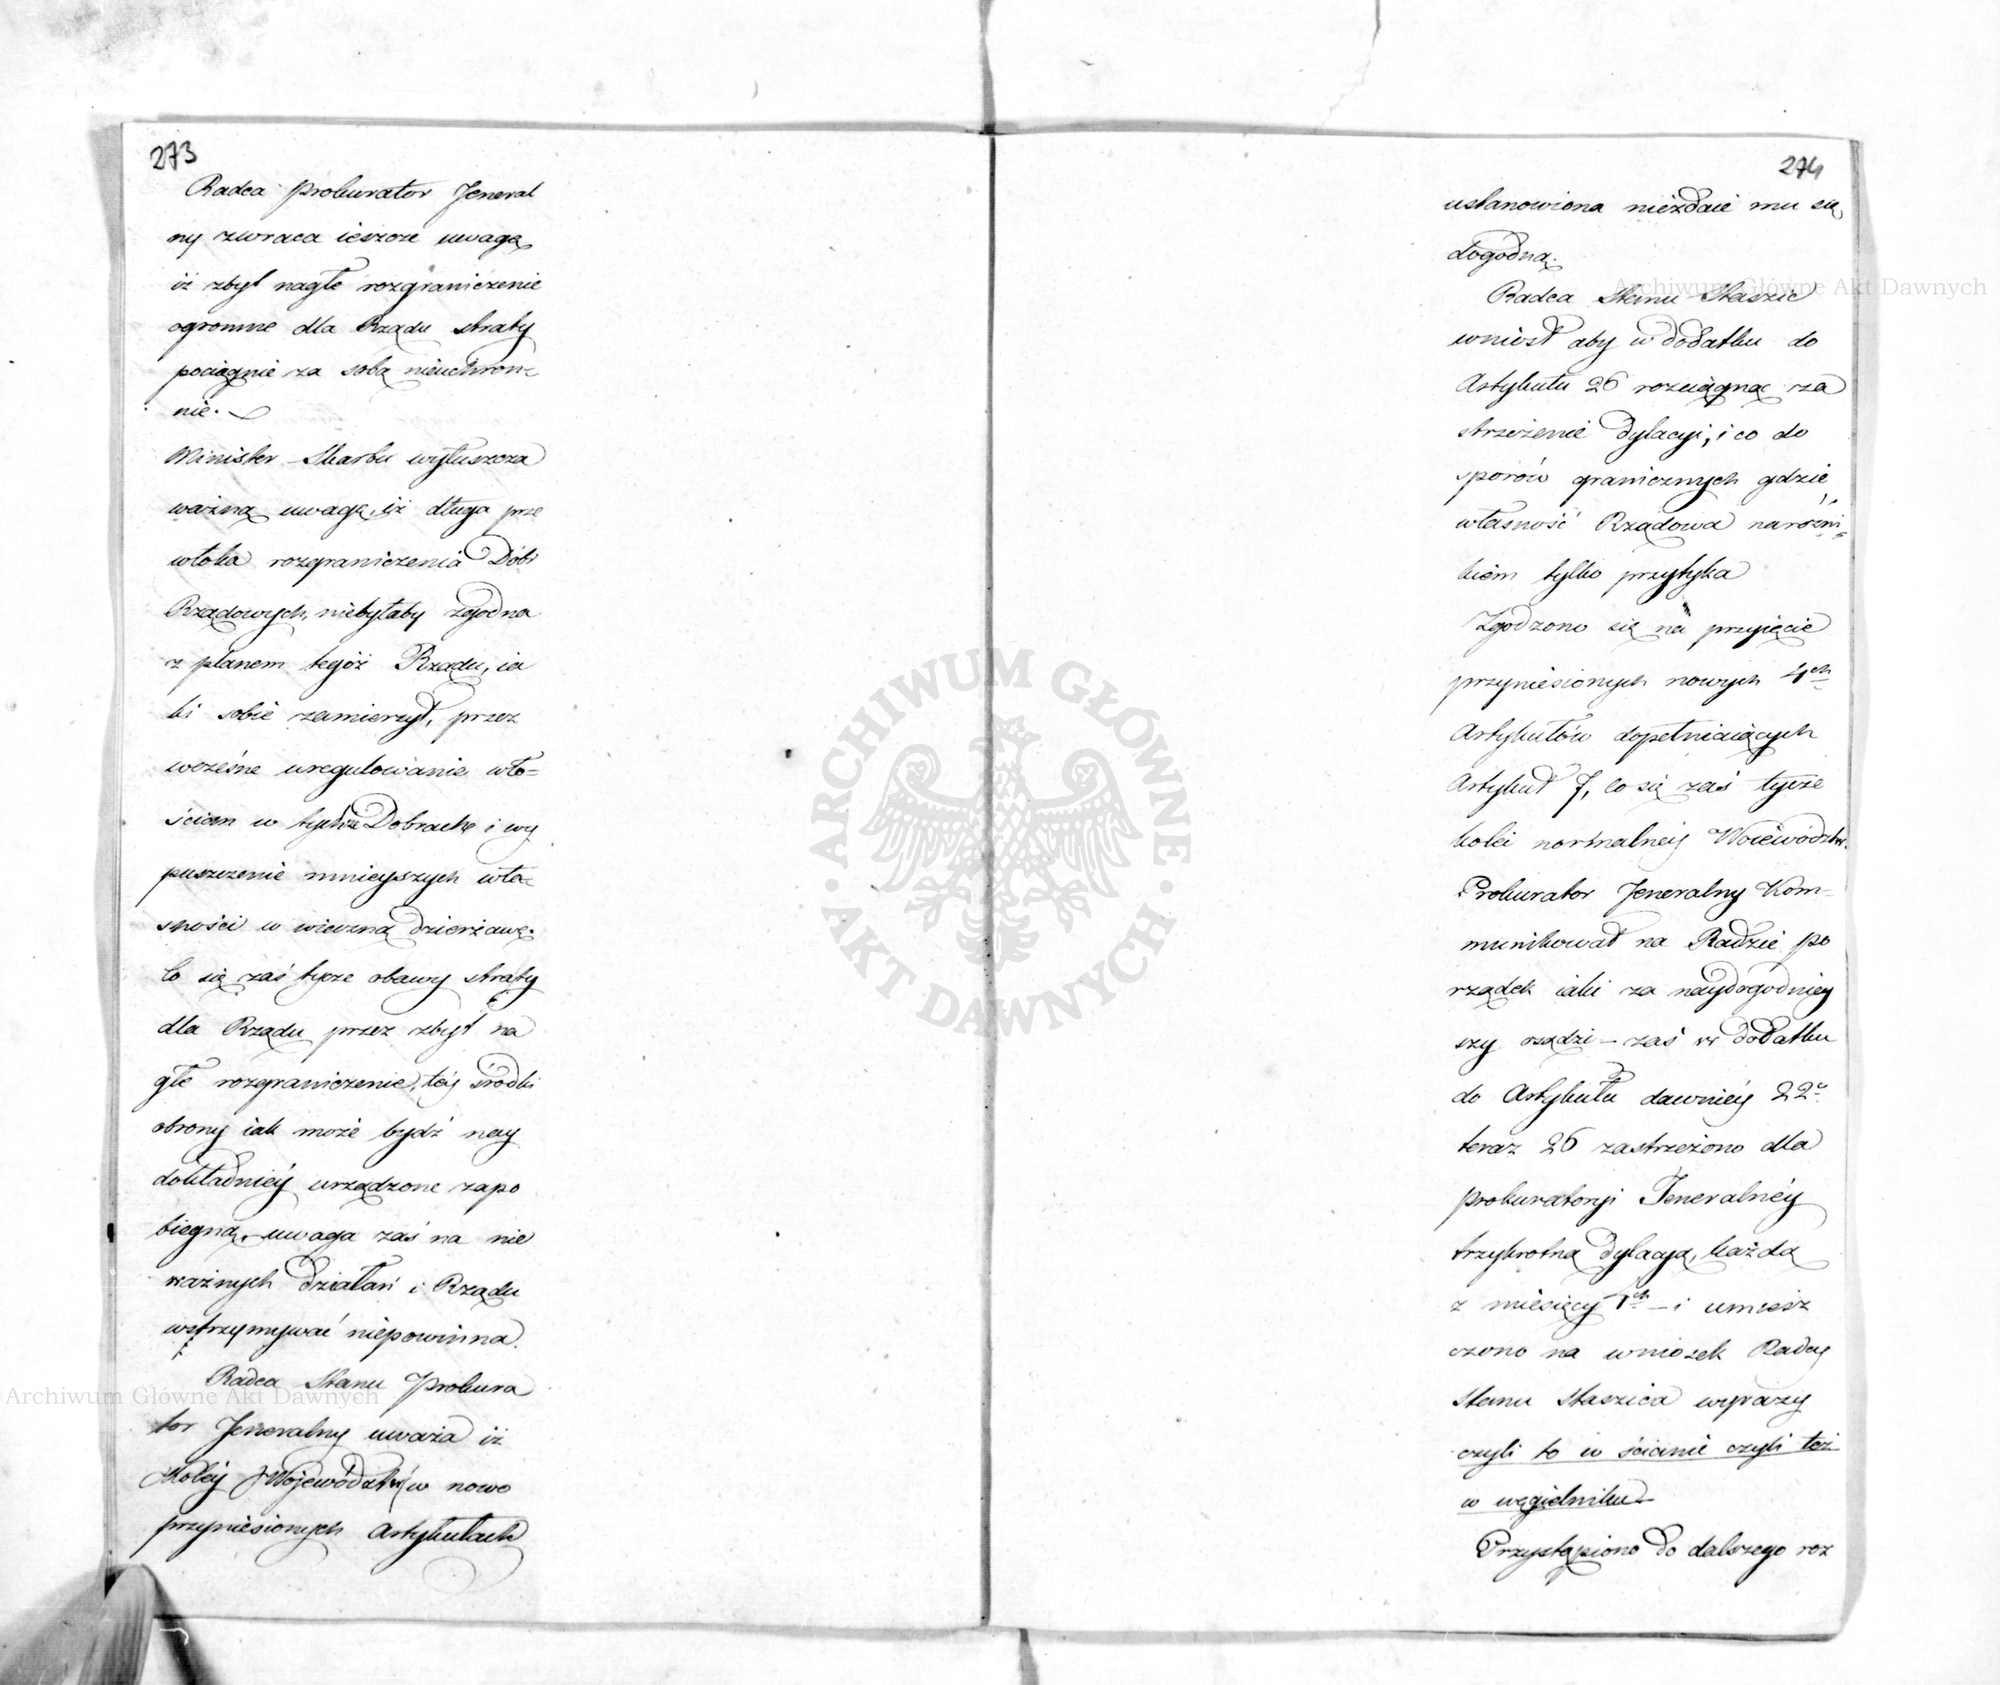 273
Radca Prokurator Jeneral
ny zwraca ieszcze uwagę,
iż zbyt nagłe rozgraniczenie
ogromne dla Rządu straty
pociągnie za sobą nieuchron=
nie.
Minister Skarbu wyłuszcza
ważną uwagę, iż długa prze
włoka rozgraniczenia Dóbr
Rządowych, niebyłaby zgodna
z planem tegóż Rządu, ia
ki sobie zamierzył, przez
wcześne uregulowanie wło=
ścian w tychże Dobrach i wy
puszczenie mnieyszych wła=
sności w wieczną dzierżawę.
Co się zaś tycze obawy straty
dla Rządu przez zbyt na
głe rozgraniczenie, téy środki
obrony iak może bydź nay
dokładniéy urządzone zapo
biegną, uwaga zaś na nie
ważnych działań i Rządu
wstrzymywać niepowinna.
Radca Stanu Prokura
tor Jeneralny uważa iż
Koléy Wojewódzkw w nowo
przyniesionych Artykułach
274
ustanowiona niezdaie mu się
dogodną.
Radca Stanu Staszic
wniosł aby w dodatku do
Artykułu 26 rozciągnąc za
strzeżenie dylacyi, i co do
sporów granicznych gdzie
własność Rządowa narożni=
kiem tylko przytyka
Zgodzono się na przyięcie
przyniesionych nowych 4ch
Artykułów dopełniaiących
Artykuł 7, co się zaś tycze
kolei normalnéy Woiewództw.
Prokurator Jeneralny Kom=
munikował na Radzie po
rządek iaki za naydogodniey
szy osądzi – zaś w dodatku
do Artykułu dawniéy 22o
teraz 26 zastrzeżono dla
Prokuratoryi Jeneralnéy
trzykrotną dylacyą, każdą
z miesięcy ch – i umiesz
czono na wniosek Radcy
Stanu Staszica wyrazy
czyli to w ścianie czyli też
w węgielniku –
Przystąpiono do dalszego roz
ARCHIWUM GŁÓWNE
AKT DAWNYCH
Archiwum Główne Akt Dawnych
Archiwum Główne Akt Dawnych